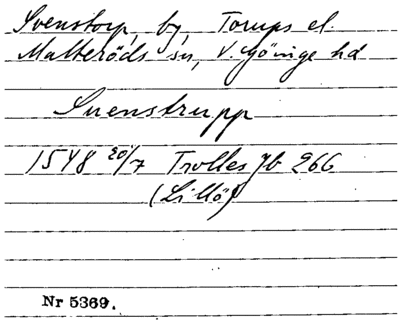 Svenstorp, by, Torups el.
Matteröds sn, V. Göinge hd
Suenstrupp
1548 20/7 Trolles Jb 266
(Lillö)
Nr 5369.